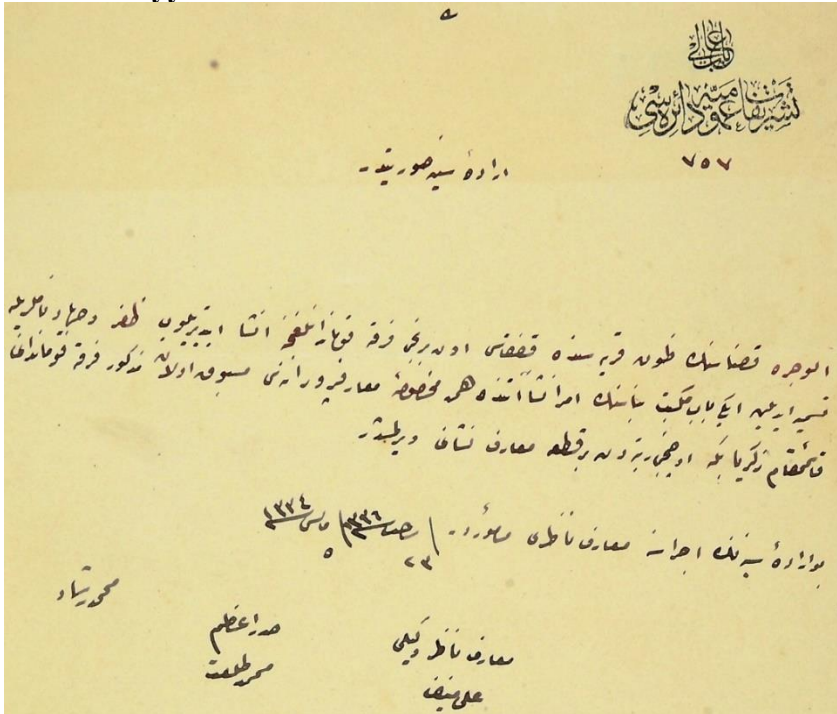 باب عالی
تشریفات عمومیه دائره سی
٧٥٧
اراده سنیه صورتیدر
قضاسنك قریه سنده قفقاس اون برنجی فرقه قوماندانلغنجه انشا ایتدیریلوب ظفر وجهاد ناملریله
تسمیه ایدیلن ایکی باب مکتب بناسنك امر انشاآتنده همم مخصوصۀ معارفپرورانه سی مسبوق اولان مذکور فرقه قوماندانی
قائممقام زکریا بكه اوچنجی رتبه دن بر قطعه معارف نشانی ویرلمشدر
بو اراده سنیه نك اجراسنه معارف ناظری مأموردر
٢٣ رجب ١٣٣٦ / ٥ مایس ١٣٣٤
محمد رشاد
صدر اعظم
محمد طلعت
معارف ناظر وکیلی
علی منیف